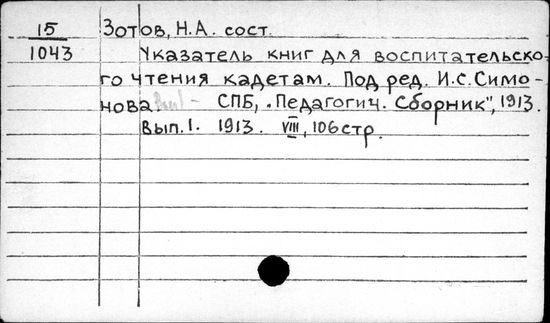 15 Зотов, Н.А. сост.
1043 Указатель книг для воспитательско-
го чтения кадетам. Под ред. И.С. Симо-
нова СПБ, "Педагогич. Сборник", 1913.
Вып. 1. 1913. VIII, 106 стр.